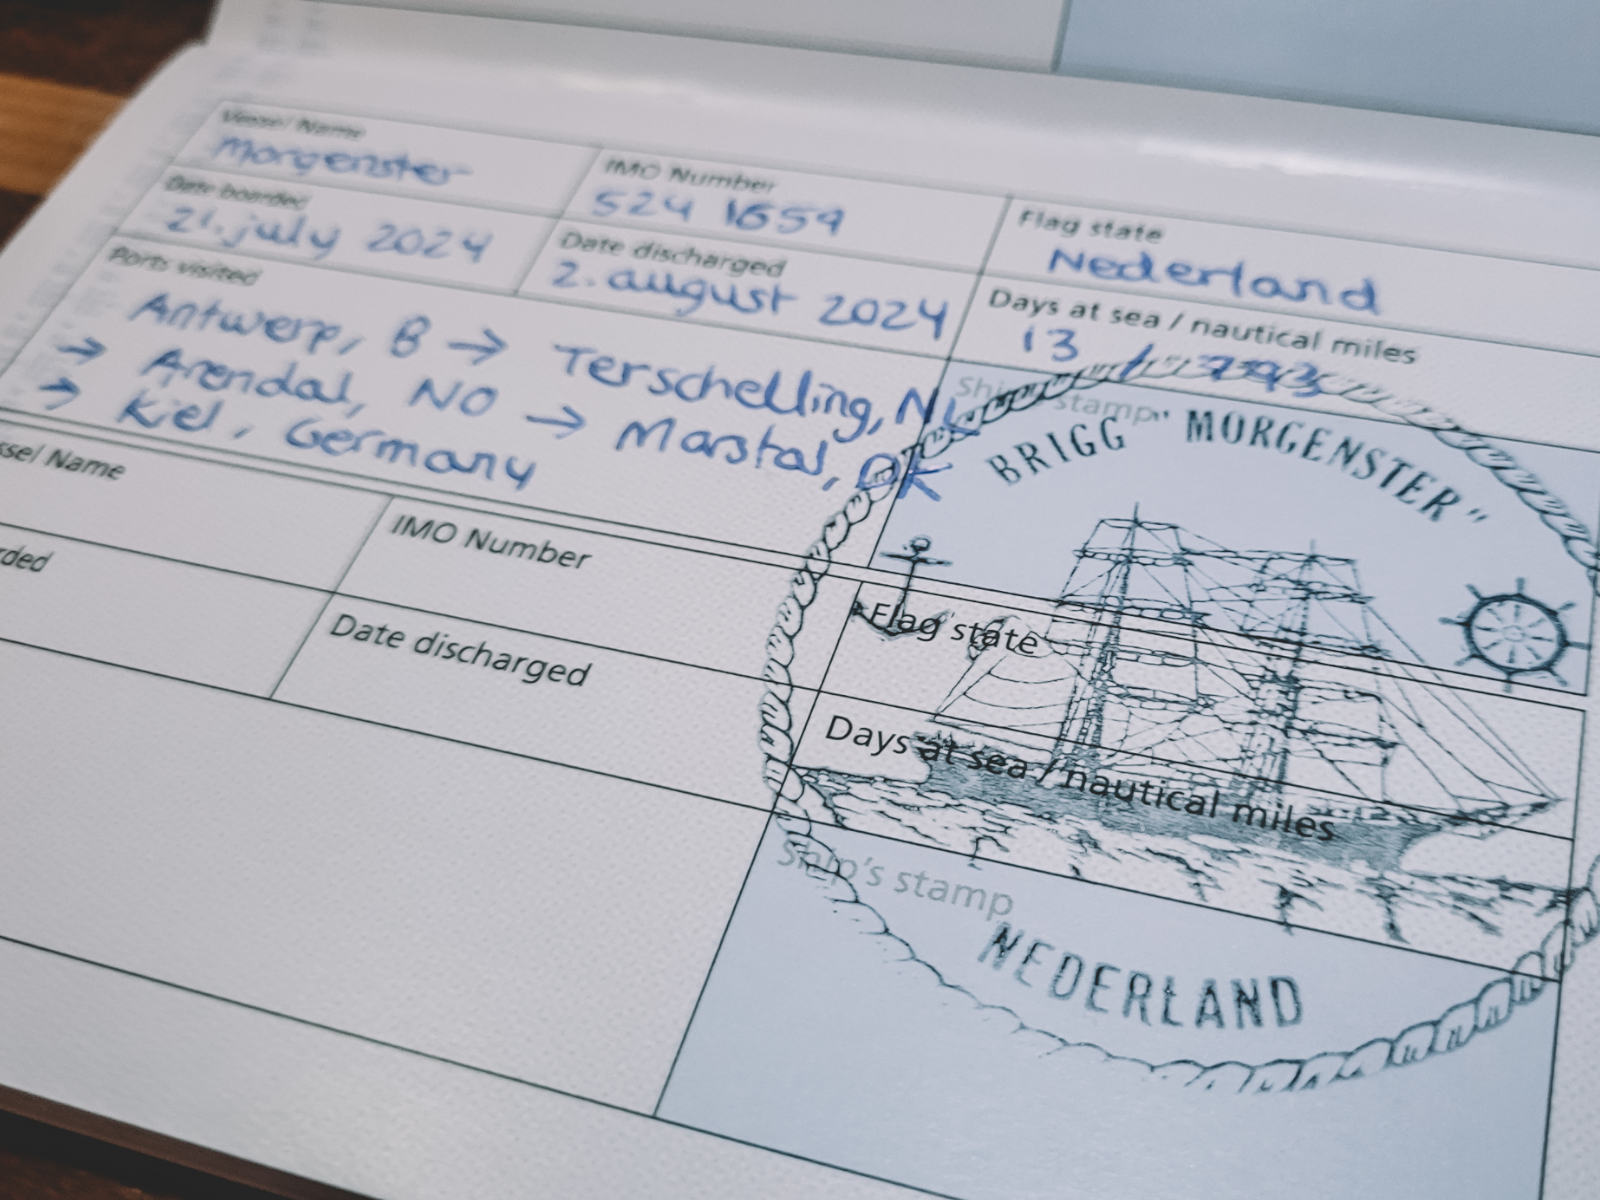 Vessel Name
Morgenster
IMO Number
524 1659
Flag state
Nederland
Date boarded
21. july 2024
Date discharged
2. august 2024
Days at sea / nautical miles
13 / 793
Ports visited
Antwerp, B → Terschelling, NL
→ Arendal, NO → Marstal, DK
→ Kiel, Germany
Ship's stamp
BRIGG "MORGENSTER"
ssel Name
IMO Number
Flag state
rded
Date discharged
Days at sea / nautical miles
Ship's stamp
NEDERLAND